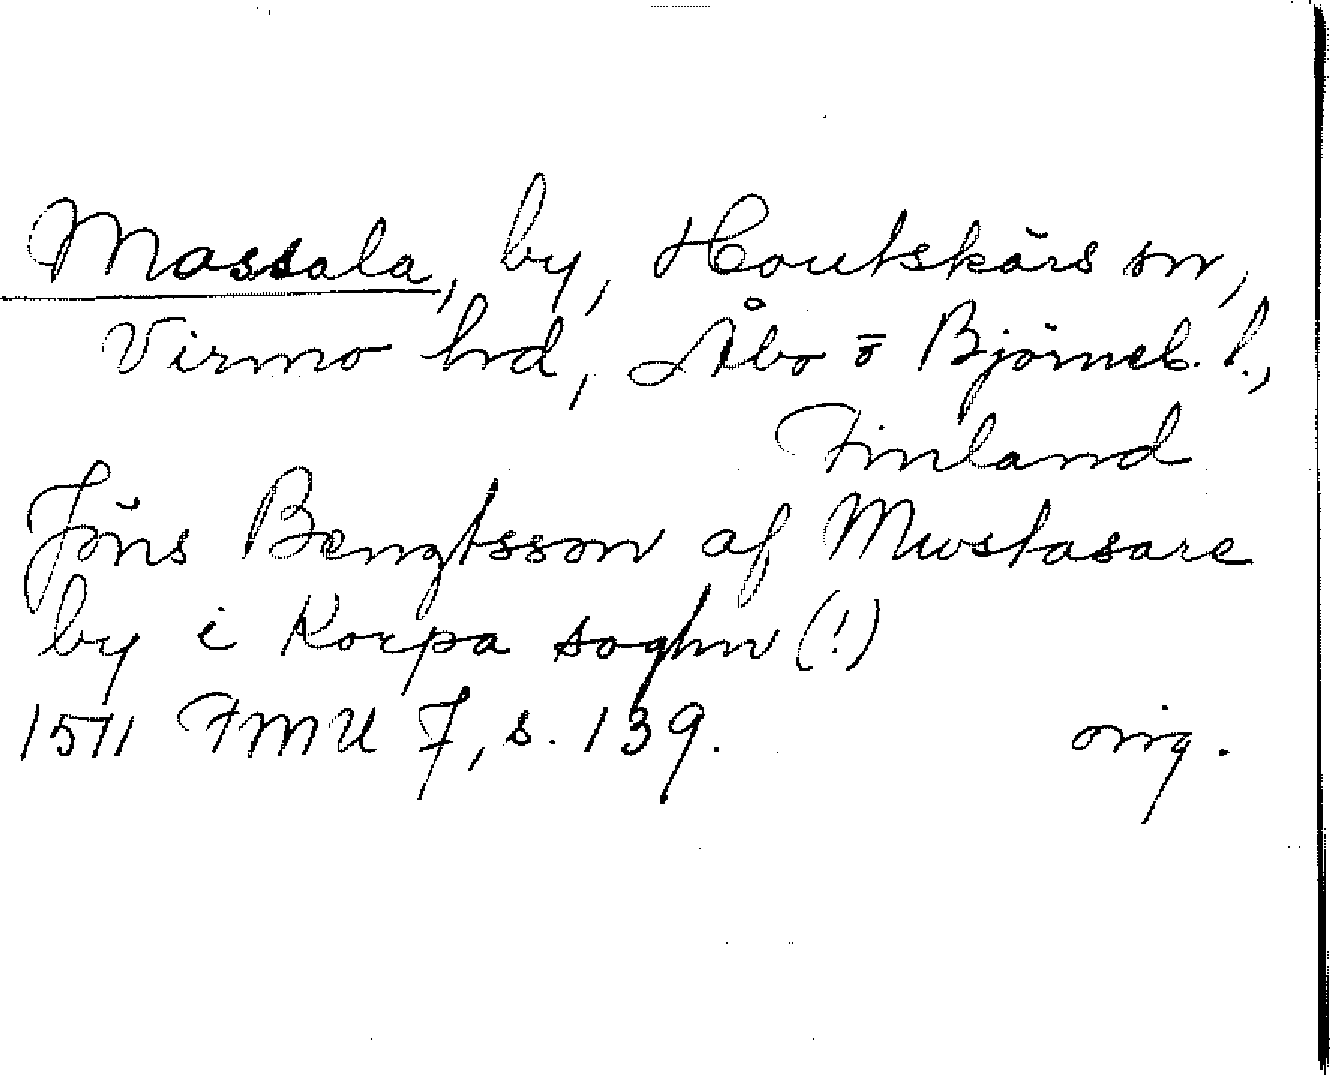 Massala, by, Houtskärs sn,
Virmo hd, Åbo o Björneb. l.,
Finland
Jöns Bengtsson af Mwstasare
by i Korpa soghn (!)
1511 FMU 7, s. 139. orig.